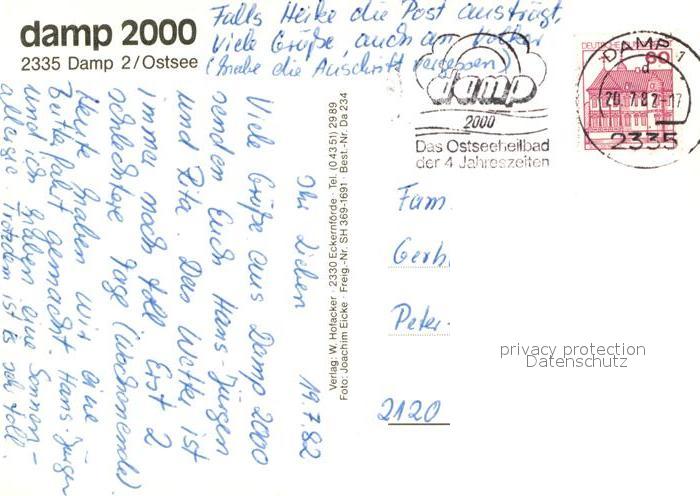 damp 2000
2335 Damp 2/Ostsee
Falls Heike die Post austrägt,
viele Grüße, auch an Volker
(habe die Anschrift vergessen)
damp
2000
Das Ostseeheilbad
der 4 Jahreszeiten
DEUTSCHE BUNDES
60
DAMP
d
20.7.82-17
2335
19.7.82
Ihr Lieben
Viele Grüße aus Damp 2000
senden Euch Hans-Jürgen
und Rita. Das Wetter ist
immer noch toll. Erst 2
schlechtere Tage (Wochenende)
Heute haben wir eine
gemacht. Hans-Jürgen
und ich haben eine Sonnen-
allergie. Trotzdem ist es sehr toll.
Verlag: W. Hofacker · 2330 Eckernförde · Tel. (0 43 51) 29 89
Foto: Joachim Eicke · Freig.-Nr. SH 369-1691 · Best.-Nr. Da 234
Fam.
Gerh
Peter-
2120
privacy protection
Datenschutz